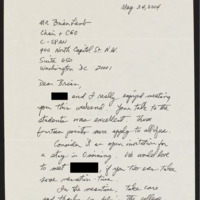 May 24, 2004
Mr. Brian Lamb
Chair + CEO
C-SPAN
400 North Capitol St. N.W.
Suite 650
Washington DC 20001
Dear Brian,
and I really enjoyed meeting
you this weekend. Your talk to the
students was excellent. Those
fourteen points were apply to all of us.
Consider it an open invitation for
a stay in Wyoming. We would love
to meet if you two can take
some vacation time.
In the meantime, take care
and thanks